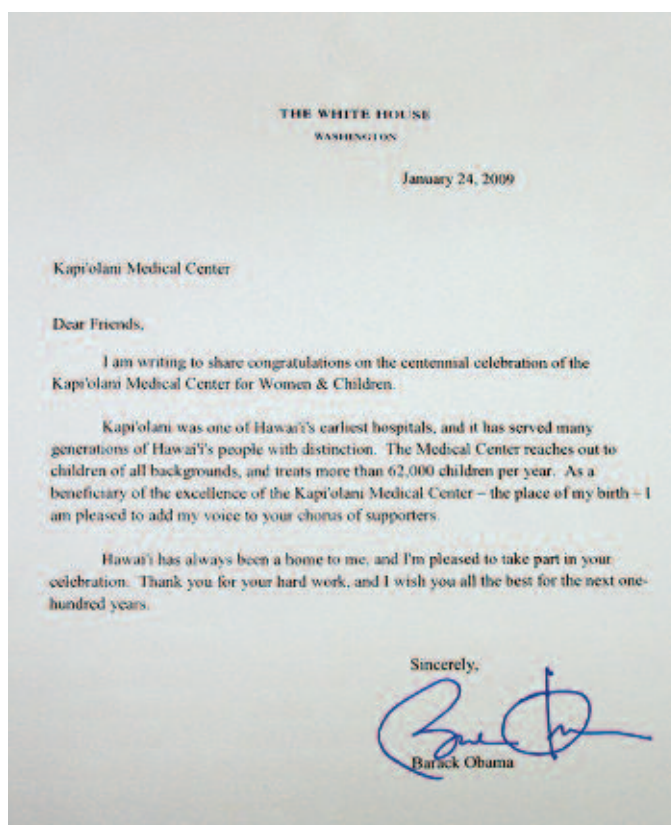 THE WHITE HOUSE
WASHINGTON
January 24, 2009
Kapi'olani Medical Center
Dear Friends,
I am writing to share congratulations on the centennial celebration of the
Kapi'olani Medical Center for Women & Children.
Kapi'olani was one of Hawai'i's earliest hospitals, and it has served many
generations of Hawai'i's people with distinction. The Medical Center reaches out to
children of all backgrounds, and treats more than 62,000 children per year. As a
beneficiary of the excellence of the Kapi'olani Medical Center – the place of my birth – I
am pleased to add my voice to your chorus of supporters.
Hawai'i has always been a home to me, and I'm pleased to take part in your
celebration. Thank you for your hard work, and I wish you all the best for the next one-
hundred years.
Sincerely,
Barack Obama